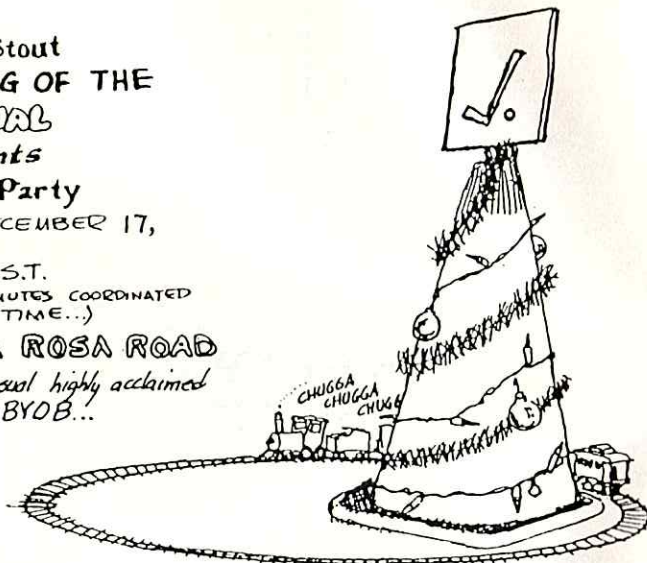 Stout
G OF THE
Party
CEMBER 17,
S.T.
NUTES COORDINATED
TIME...)
ROSA ROAD
sual highly acclaimed
BYOB...
CHUGGA
CHUGGA
CHUGG